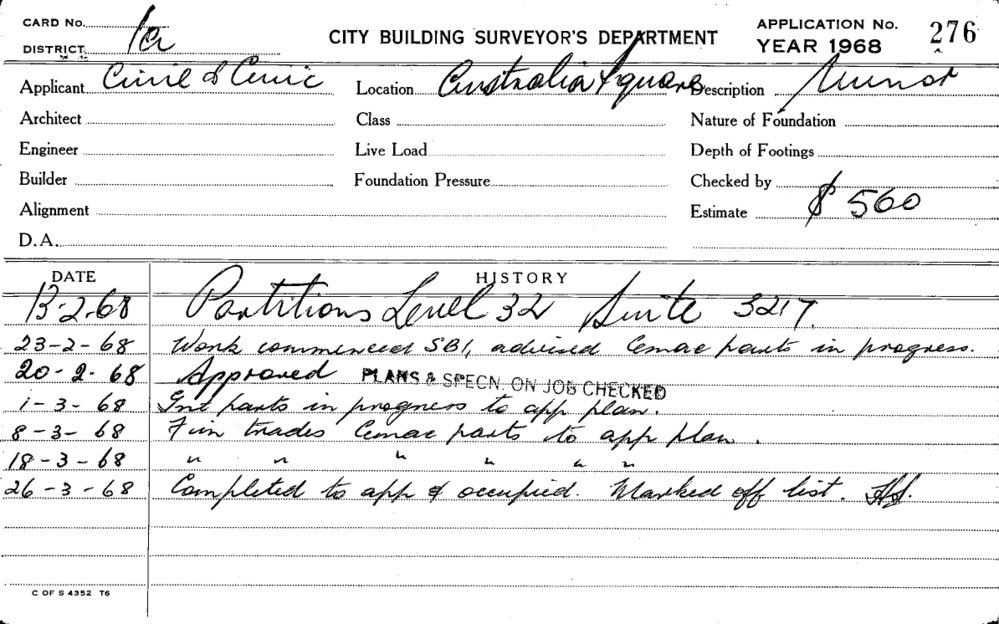 CARD No.
DISTRICT 1a
CITY BUILDING SURVEYOR'S DEPARTMENT
APPLICATION No. 276
YEAR 1968
Applicant Civil & Civic Location Australia Square Description Minor
Architect Class Nature of Foundation
Engineer Live Load Depth of Footings
Builder Foundation Pressure Checked by
Alignment Estimate $ 560
D.A.
DATE HISTORY
13-2-68 Partitions Level 32 Suite 3217.
23-2-68 Work commenced SBI, advised Cemac parts in progress.
20-2-68 Approved PLANS & SPECN. ON JOB CHECKED
1-3-68 Int parts in progress to app plan.
8-3-68 Fin trades Cemac parts to app plan.
18-3-68 " " " " " "
26-3-68 Completed to app & occupied. Marked off list.
C OF S 4352 T6